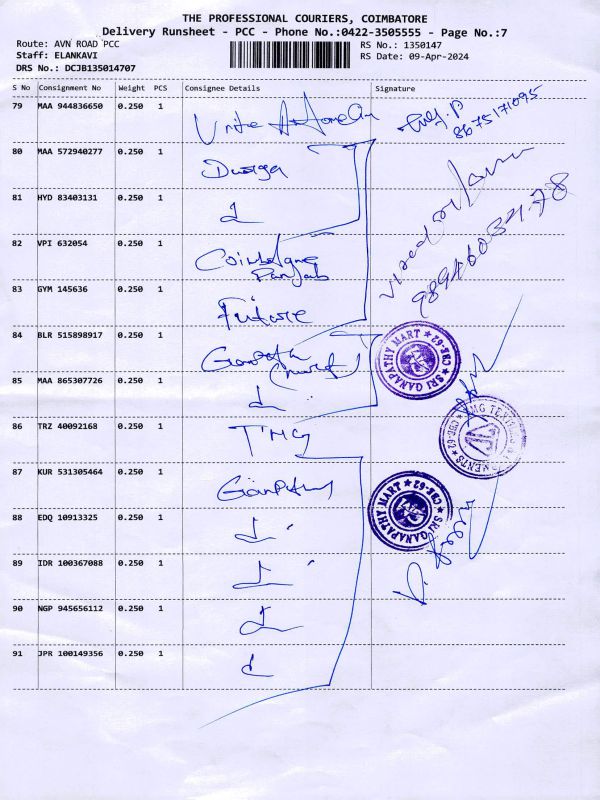 THE PROFESSIONAL COURIERS, COIMBATORE
Delivery Runsheet - PCC - Phone No.:0422-3505555 - Page No.:7
Route: AVN ROAD PCC
Staff: ELANKAVI
DRS No.: DCJB135014707
RS No.: 1350147
RS Date: 09-Apr-2024
S No Consignment No Weight PCS Consignee Details Signature
79 MAA 944836650 0.250 1
8675171095
80 MAA 572940277 0.250 1 Durga
81 HYD 83403131 0.250 1
82 VPI 632054 0.250 1 Coimbatore
Punjab
83 GYM 145636 0.250 1 Future
84 BLR 515898917 0.250 1
SRI GANAPATHY MART ★ CBE-62 ★
85 MAA 865307726 0.250 1
86 TRZ 40092168 0.250 1 TMG
87 KUR 531305464 0.250 1
SRI GANAPATHY MART ★ CBE-62 ★
88 EDQ 10913325 0.250 1
89 IDR 100367088 0.250 1
90 NGP 945656112 0.250 1
91 JPR 100149356 0.250 1